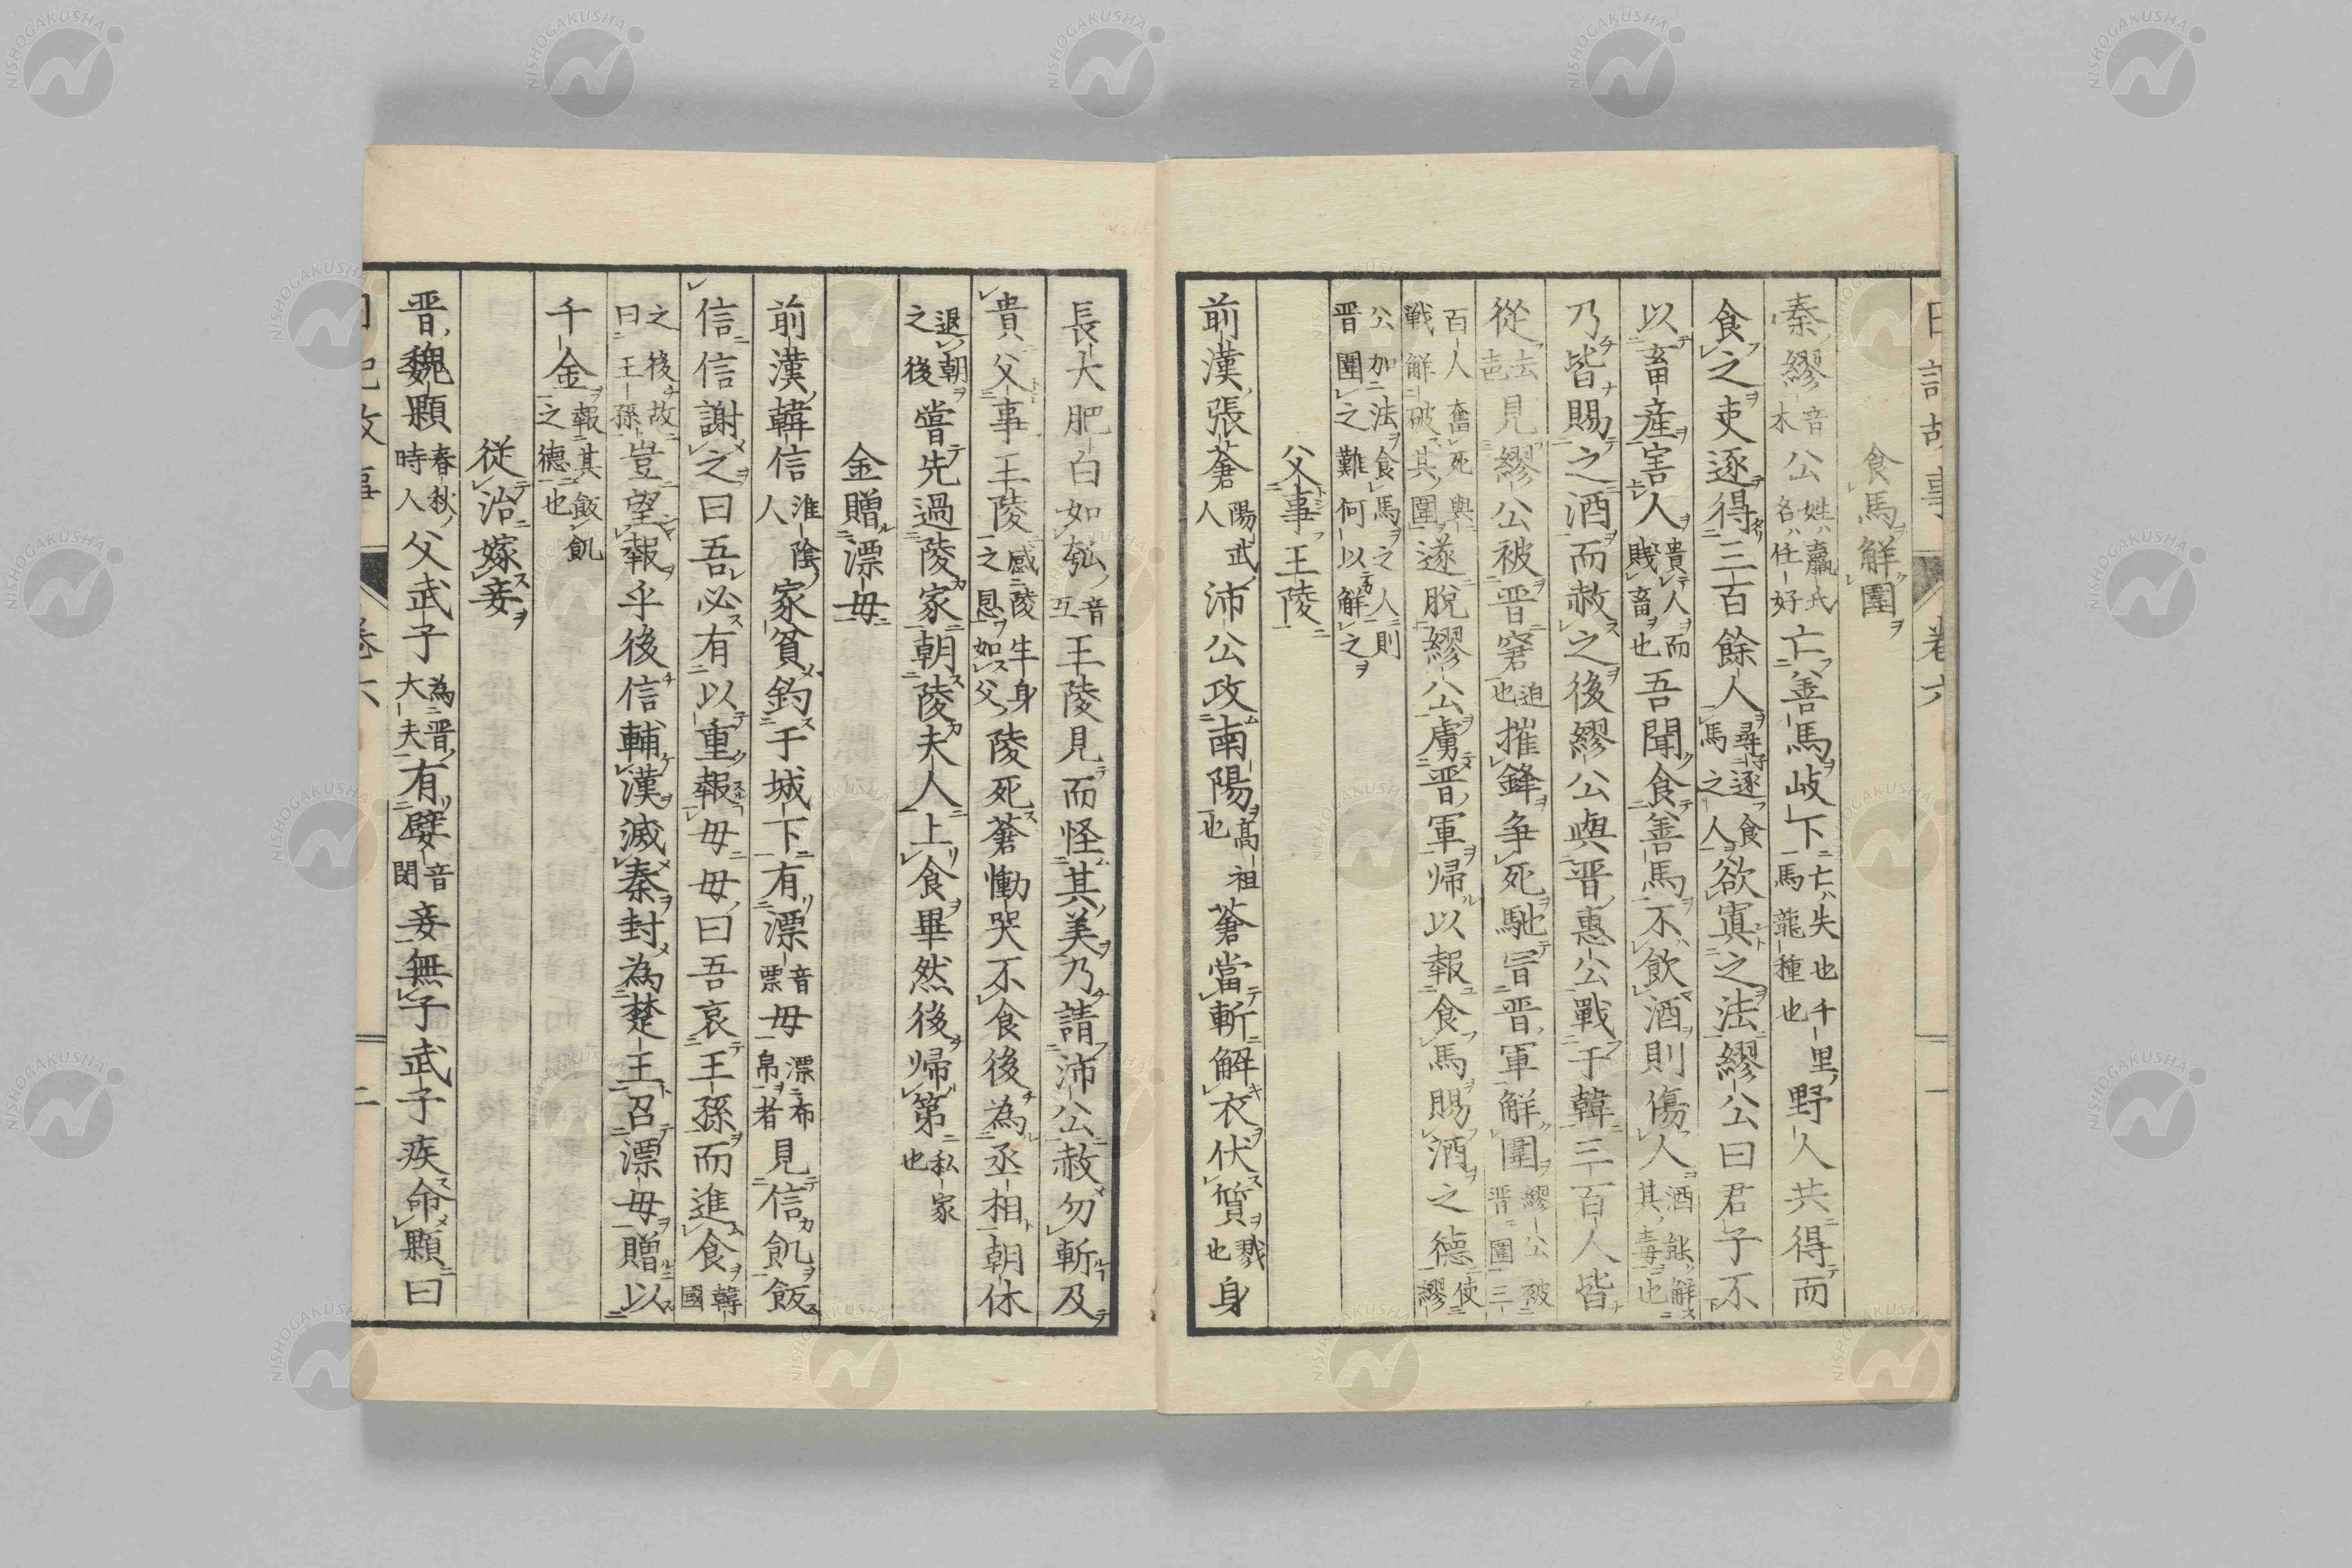 日記故事 卷六 一
食馬解圍
秦繆音木公姓ハ嬴氏名ハ任好亡善馬岐下亡ハ失也千里馬龍種也野人共得而
食之吏逐得三百餘人尋逐食馬之人欲寘之法繆公曰君子不
以畜産害人貴人而賎畜也吾聞食善馬不飲酒則傷人酒能解其毒也
乃皆賜之酒而赦之後繆公與晋惠公戰于韓三百人皆
從去見繆公被晋窘迫也摧鋒争死馳冒晋軍解圍繆公被晋圍三
百人奮死與戦解破其圍遂脱繆公虜晋軍帰以報食馬賜酒之德使繆
公加法食馬之人則晋圍之難何以解之
父事王陵
前漢張蒼陽武人沛公攻南陽高祖也蒼當斬解衣伏質戮也身
長大肥白如瓠音互王陵見而怪其美乃請沛公赦勿斬及
貴父事王陵感陵生身之恩如父陵死蒼慟哭不食後為丞相朝休
退朝之後嘗先過陵家朝陵夫人上食畢然後帰第私家也
金贈漂母
前漢韓信淮陰人家貧釣于城下有漂音票母漂布帛者見信飢飯
信信謝之曰吾必有以重報母母曰吾哀王孫而進食韓國
之後故曰王孫豈望報乎後信輔漢滅秦封為楚王召漂母贈以
千金報其飯飢之德也
従治嫁妾
晋魏顆春秋時人父武子為晋大夫有嬖音閉妾無子武子疾命顆曰
日記故事 卷六 二